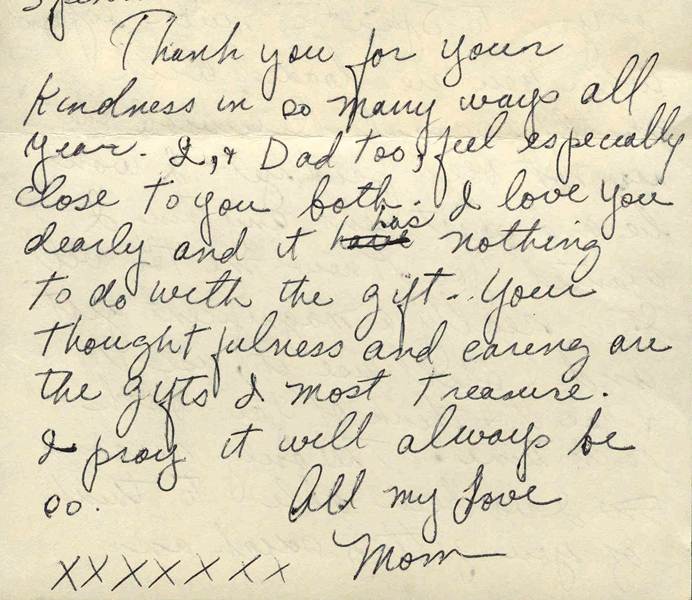 Thank you for your
kindness in so many ways all
year. I, & Dad too, feel especially
close to you both. I love you
dearly and it have has nothing
to do with the gift.. Your
thoughtfulness and caring are
the gifts I most treasure.
I pray it will always be
so. All my Love
Mom
XXXXXXX